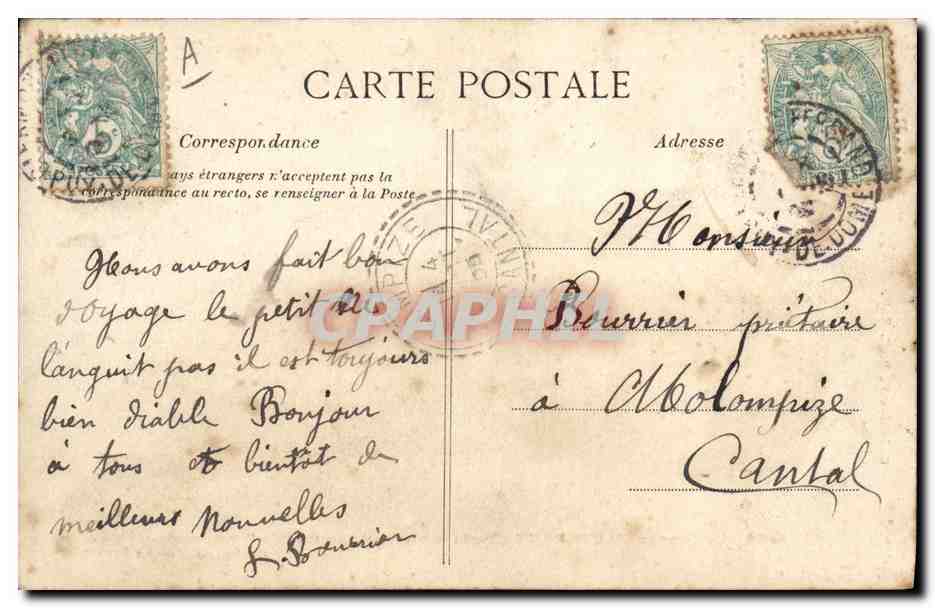 A
CARTE POSTALE
Correspondance
ays étrangers n'acceptent pas la
correspondance au recto, se renseigner à la Poste
Adresse
Nous avons fait bon
voyage le petit ne
languit pas il est toujours
bien diable Bonjour
à tous et bientôt de
meilleurs nouvelles
Bourrier
Monsieur
Bourrier priétaire
à Molompize
Cantal
MOLOMPIZE
CANTAL
PUY-DE-DOME
CARPHIL